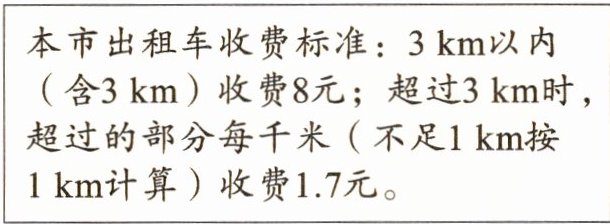 本市出租车收费标准：3 km以内
（含3 km）收费8元；超过3 km时，
超过的部分每千米（不足1 km按
1 km计算）收费1.7元。